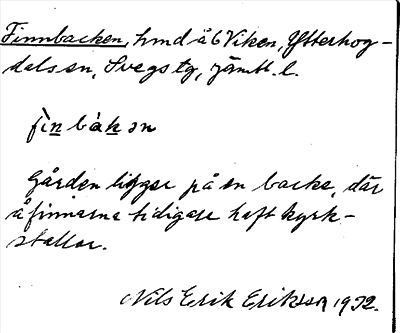 Finnbacken, hmd å 6 Viken, Ytterhog-
dals sn, Svegs tg, Jämtl. l.
fìnbàkən
Gården ligger på en backe, där
åfinnarna tidigare haft kyrk-
stallar.
Nils Erik Eriksson 1932.